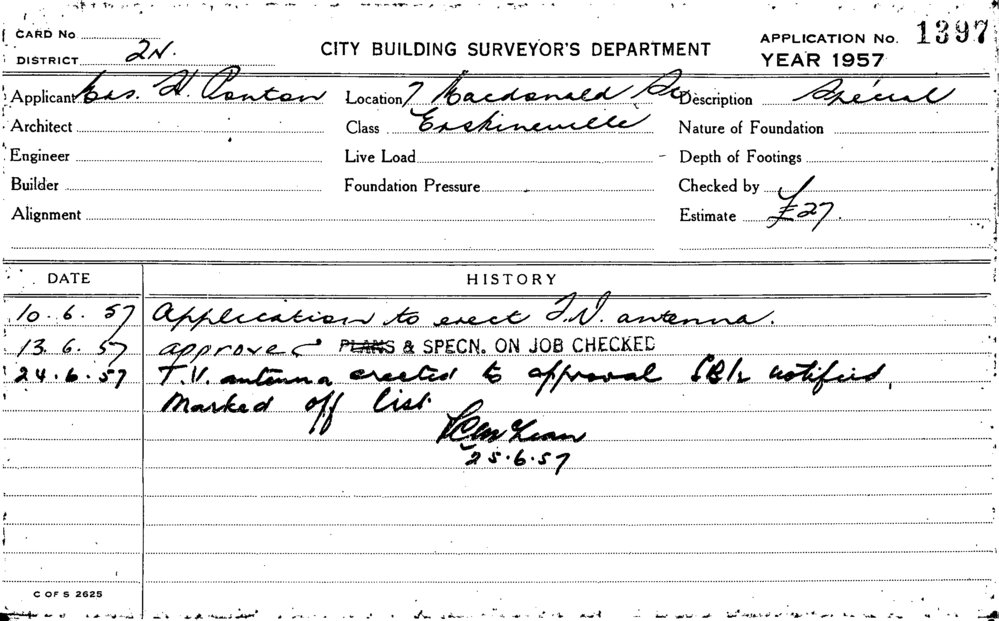 CARD No
DISTRICT 2N.
CITY BUILDING SURVEYOR'S DEPARTMENT
APPLICATION No. 1397
YEAR 1957
Applicant Mrs. H. Ponton
Location 7 Macdonald St
Description Special
Architect
Class Erskineville
Nature of Foundation
Engineer
Live Load
Depth of Footings
Builder
Foundation Pressure
Checked by
Alignment
Estimate £27.
DATE HISTORY
10.6.57 Application to erect T.V. antenna.
13.6.57 approved PLANS & SPECN. ON JOB CHECKED
24.6.57 T.V. antenna erected to approval notified.
Marked off list
25.6.57
C OF S 2625